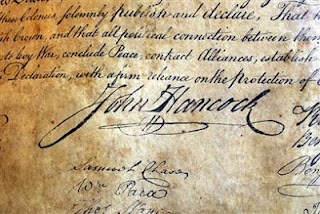 these Colonies, solemnly publish and declare, That
Crown, and that all political connection between them
War, conclude Peace, contract Alliances, establish
Declaration, with a firm reliance on the protection of
John Hancock
Samuel Chase
Wm Paca
Thos